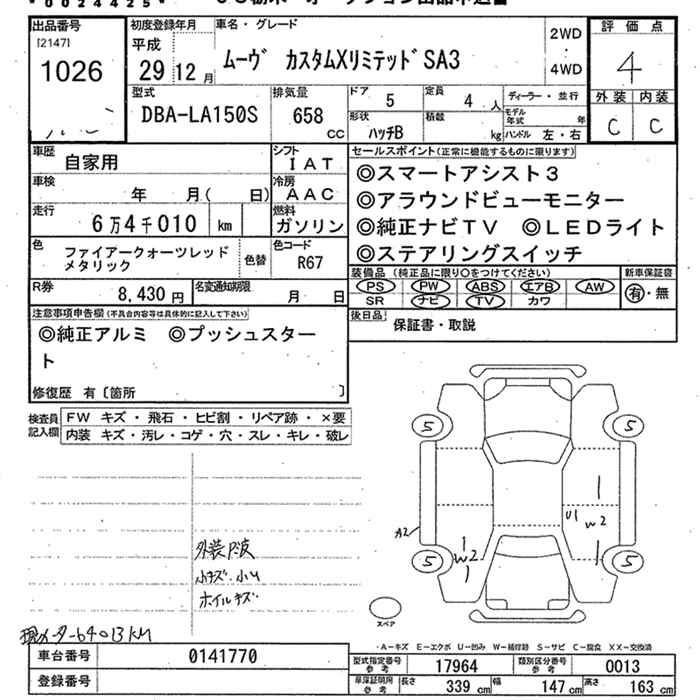 *0024425*
出品番号
[2147]
1026
初度登録年月
平成
29 12 月
車名・グレード
ムーヴ カスタムXリミテッドSA3
2WD
・
4WD
評価点
4
外装 内装
C C
型式
DBA-LA150S
排気量
658
CC
ドア
5
定員
4 人
形状
ハッチB
積載
kg
ディーラー・並行
モデル年式
年
ハンドル 左・右
車歴
自家用
シフト
IAT
車検
年 月( 日)
冷房
AAC
走行
6万4千010 km
燃料
ガソリン
色
ファイアークォーツレッド
メタリック
色替
色コード
R67
R券
8,430 円
名変通知期限
月 日
セールスポイント(正常に機能するものに限ります)
◎スマートアシスト3
◎アラウンドビューモニター
◎純正ナビTV ◎LEDライト
◎ステアリングスイッチ
装備品 (純正品に限り○をつけてください)
PS PW ABS エアB AW
SR ナビ TV カワ
新車保証書
有・無
後日品
保証書・取説
注意事項申告欄(不具合内容等は具体的に記入して下さい)
◎純正アルミ ◎プッシュスター
ト
修復歴 有〔箇所 〕
検査員
記入欄
FW キズ・飛石・ヒビ割・リペア跡・×要
内装 キズ・汚レ・コゲ・穴・スレ・キレ・破レ
5 5
U1 W2
A2
W2
5 5
スペア
外装
小キズ・小凹
ホイルキズ
現メーター64013KM
・A-キズ E-エクボ U-凹み W-補修跡 S-サビ C-腐食 XX-交換済
車台番号
0141770
登録番号
型式指定番号
参考
17964
類別区分番号
参考
0013
車庫証明用
参考
長さ
339 cm
幅
147 cm
高さ
163 cm